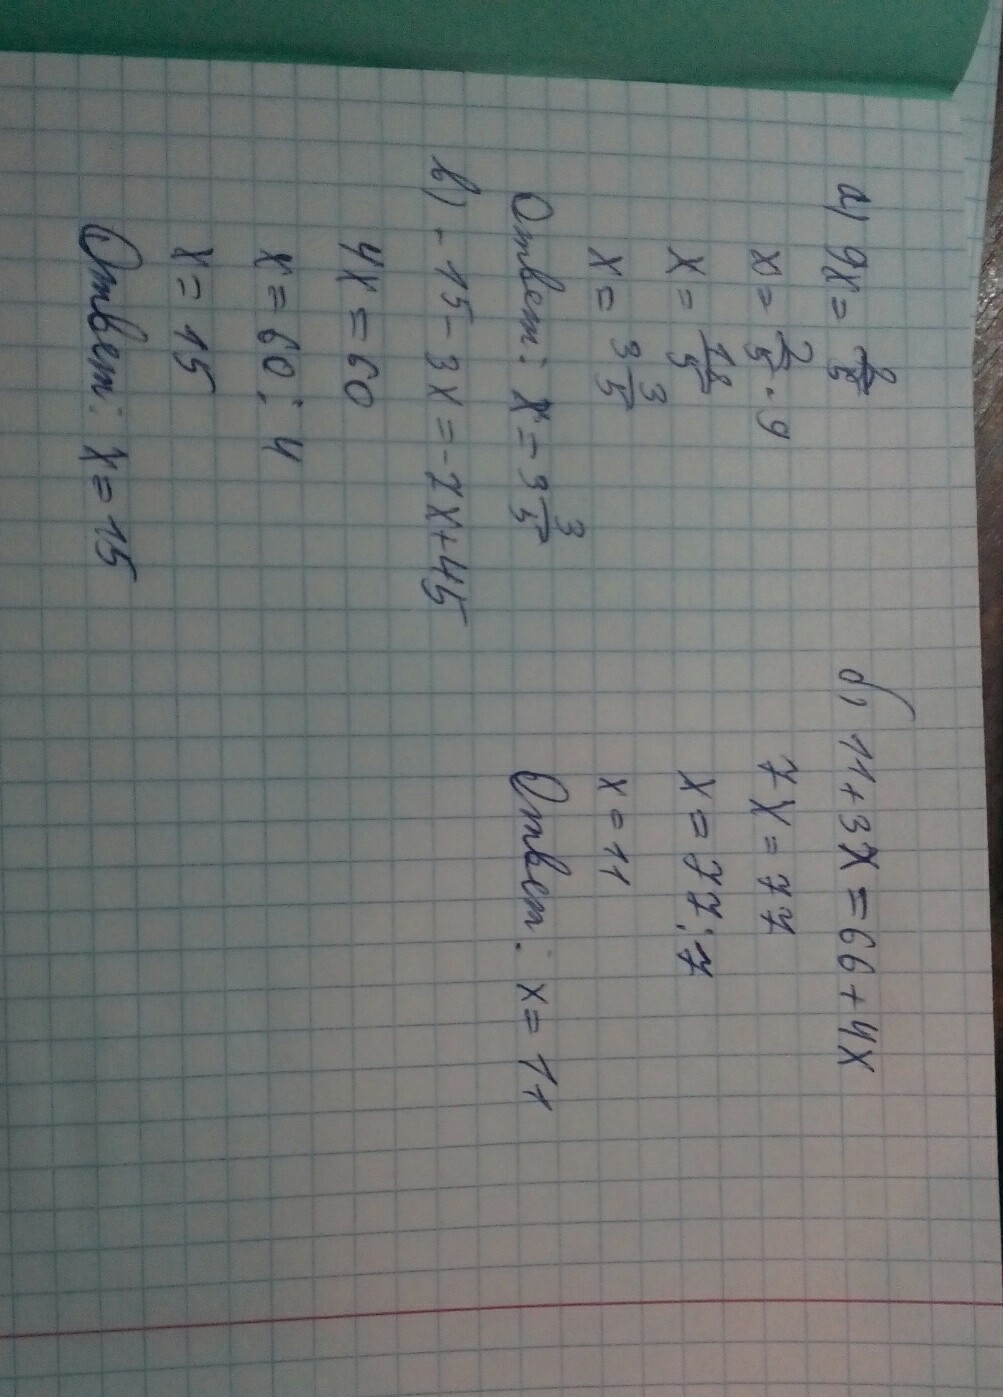 а) 9x = 2/5
x = 2/5 · 9
x = 18/5
x = 3 3/5
Ответ: x = 3 3/5
б) 11 + 3x = 66 + 4x
7x = 77
x = 77 : 7
x = 11
Ответ: x = 11
в) - 15 - 3x = -7x + 45
4x = 60
x = 60 : 4
x = 15
Ответ: x = 15